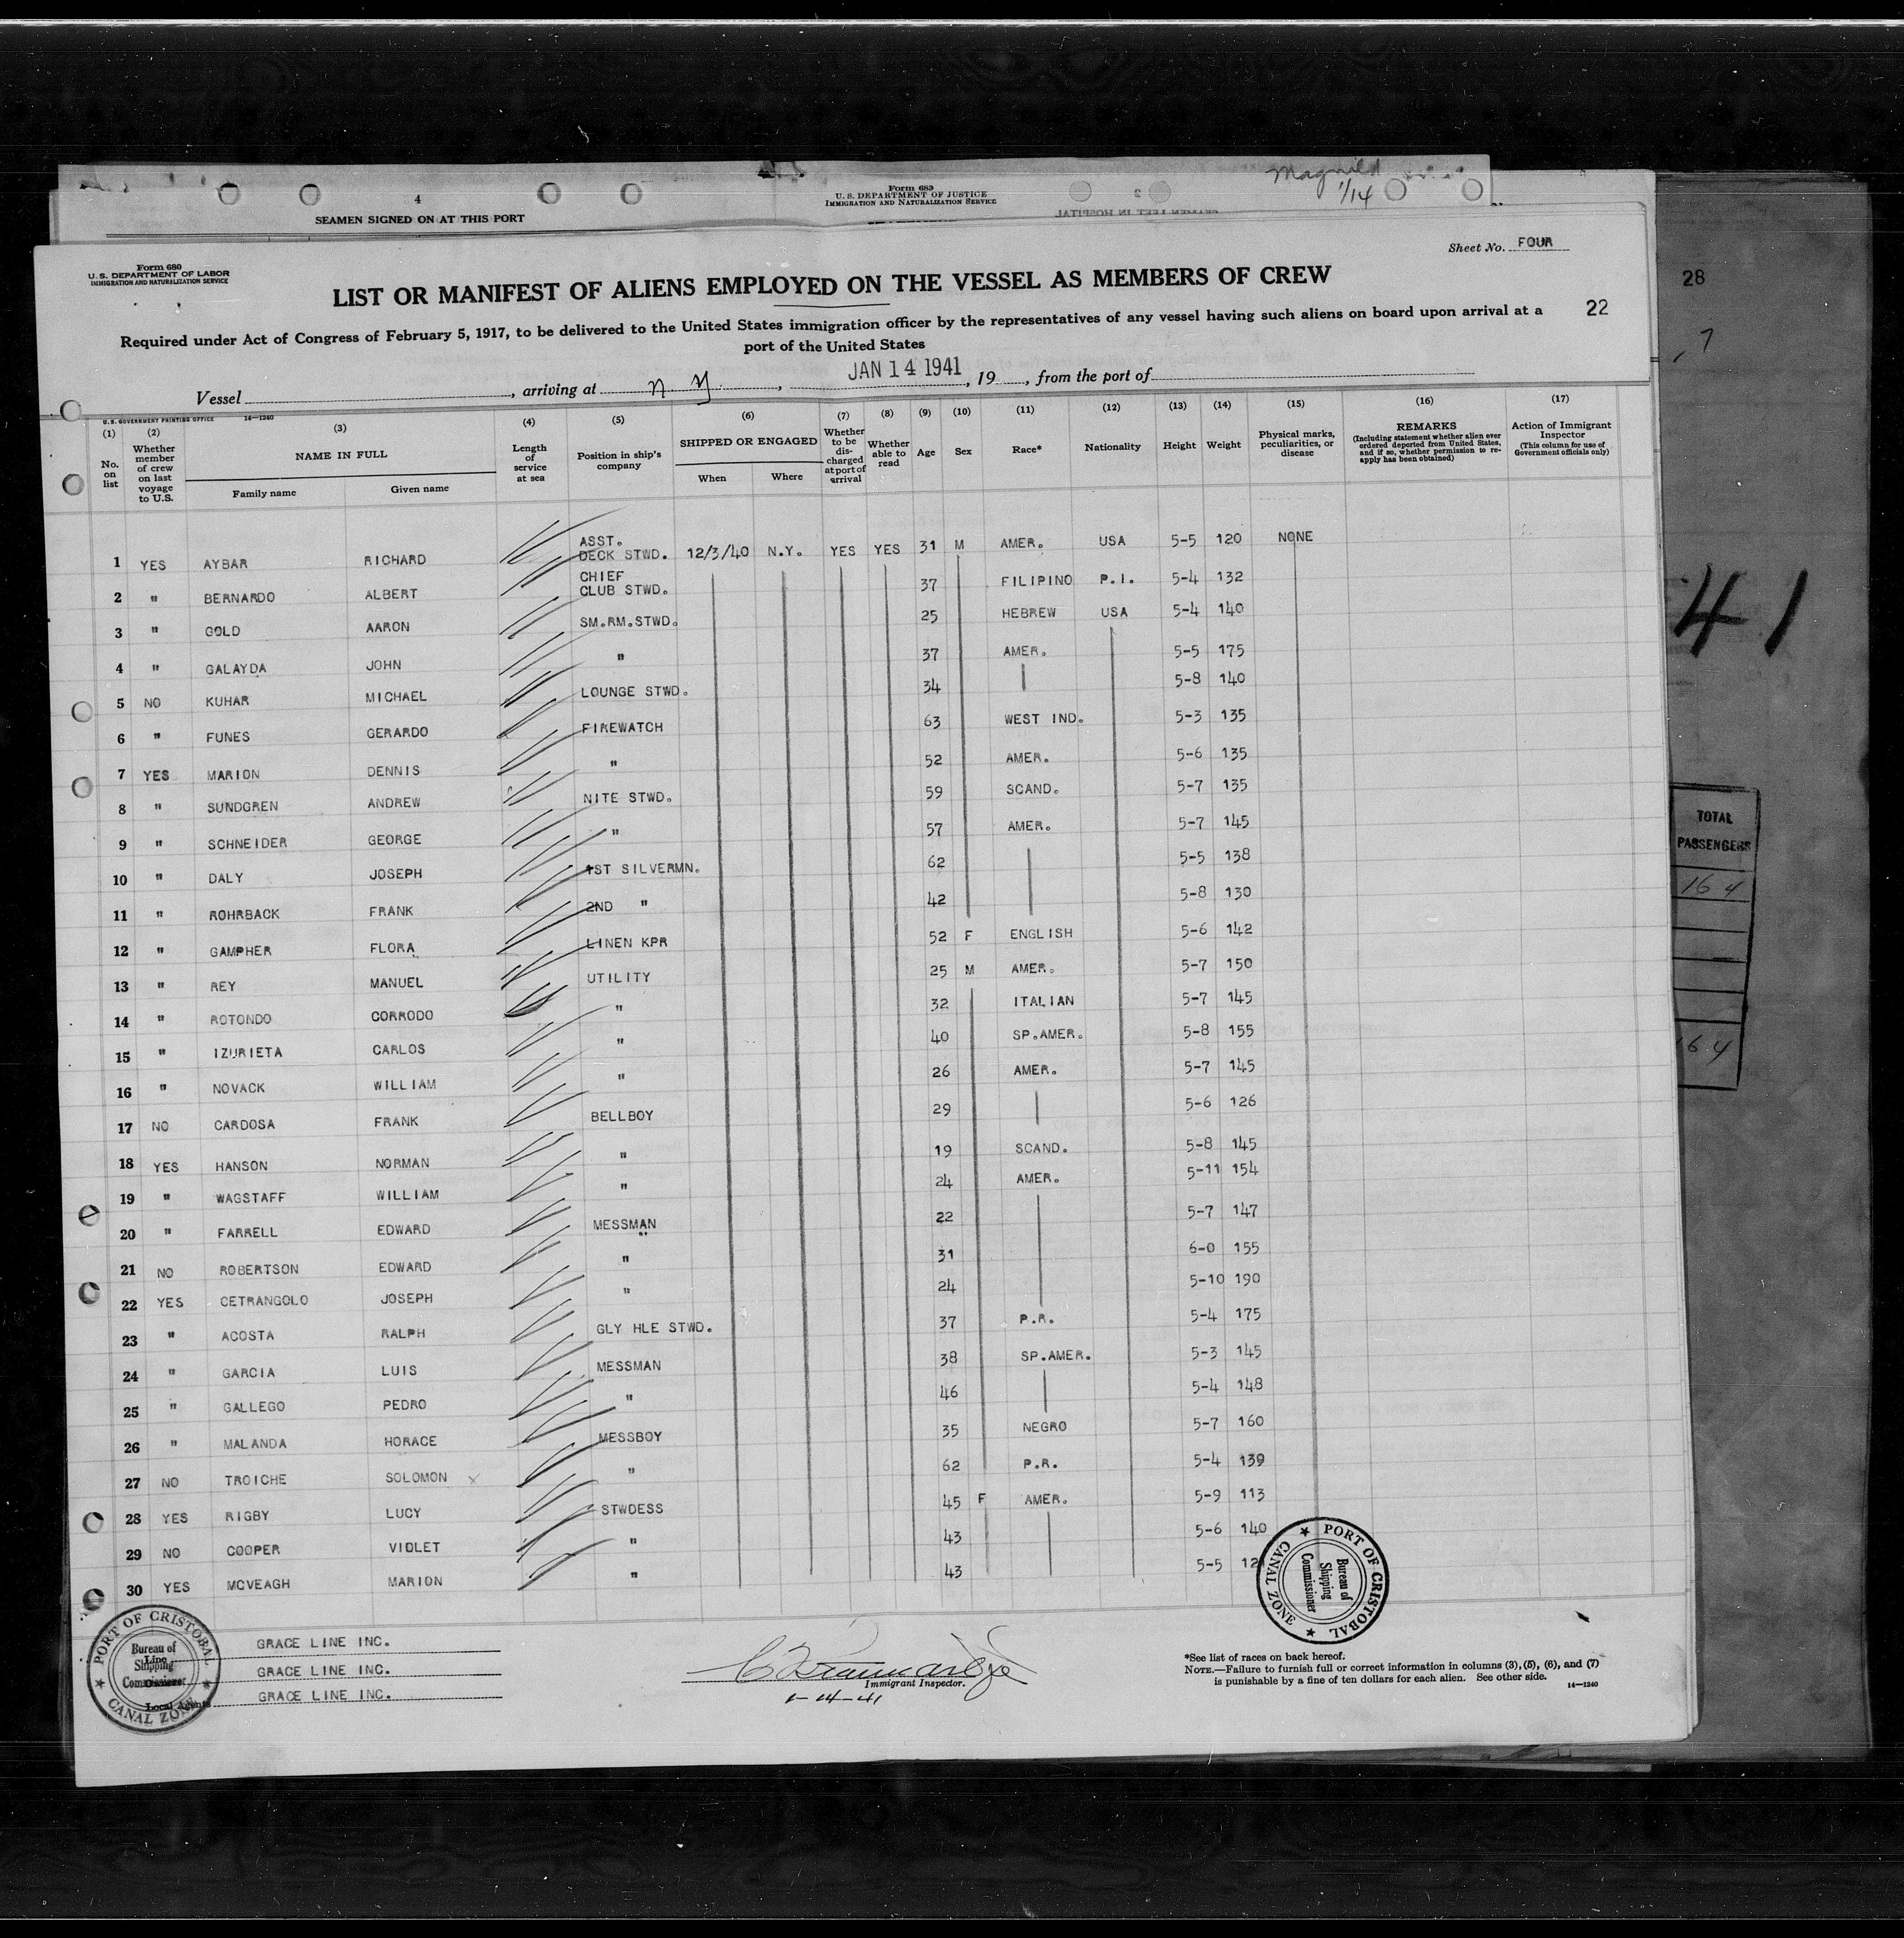 4
SEAMEN SIGNED ON AT THIS PORT
Form 689
U. S. DEPARTMENT OF JUSTICE
IMMIGRATION AND NATURALIZATION SERVICE
2
SEAMEN LEFT IN HOSPITAL
1/14
28
7
41
TOTAL
PASSENGERS
164
164
Sheet No. FOUR
Form 680
U. S. DEPARTMENT OF LABOR
IMMIGRATION AND NATURALIZATION SERVICE
LIST OR MANIFEST OF ALIENS EMPLOYED ON THE VESSEL AS MEMBERS OF CREW
22
Required under Act of Congress of February 5, 1917, to be delivered to the United States immigration officer by the representatives of any vessel having such aliens on board upon arrival at a
port of the United States
Vessel , arriving at N Y , JAN 14 1941 , 19 , from the port of
U. S. GOVERNMENT PRINTING OFFICE 14—1240
(1) (2) (3) (4) (5) (6) (7) (8) (9) (10) (11) (12) (13) (14) (15) (16) (17)
No. on list
Whether member of crew on last voyage to U.S.
NAME IN FULL
Family name Given name
Length of service at sea
Position in ship's company
SHIPPED OR ENGAGED
When Where
Whether to be discharged at port of arrival
Whether able to read
Age
Sex
Race*
Nationality
Height
Weight
Physical marks, peculiarities, or disease
REMARKS
(Including statement whether alien ever ordered deported from United States, and if so, whether permission to reapply has been obtained)
Action of Immigrant Inspector
(This column for use of Government officials only)
1 YES AYBAR RICHARD ASST. DECK STWD. 12/3/40 N.Y. YES YES 31 M AMER. USA 5-5 120 NONE
2 " BERNARDO ALBERT CHIEF CLUB STWD. 37 FILIPINO P.I. 5-4 132
3 " GOLD AARON SM.RM.STWD. 25 HEBREW USA 5-4 140
4 " GALAYDA JOHN " 37 AMER. 5-5 175
5 NO KUHAR MICHAEL LOUNGE STWD. 34 5-8 140
6 " FUNES GERARDO FIREWATCH 63 WEST IND. 5-3 135
7 YES MARION DENNIS " 52 AMER. 5-6 135
8 " SUNDGREN ANDREW NITE STWD. 59 SCAND. 5-7 135
9 " SCHNEIDER GEORGE " 57 AMER. 5-7 145
10 " DALY JOSEPH 1ST SILVERMN. 62 5-5 138
11 " ROHRBACK FRANK 2ND " 42 5-8 130
12 " GAMPHER FLORA LINEN KPR 52 F ENGLISH 5-6 142
13 " REY MANUEL UTILITY 25 M AMER. 5-7 150
14 " ROTONDO CORRODO " 32 ITALIAN 5-7 145
15 " IZURIETA CARLOS " 40 SP.AMER. 5-8 155
16 " NOVACK WILLIAM " 26 AMER. 5-7 145
17 NO CARDOSA FRANK BELLBOY 29 5-6 126
18 YES HANSON NORMAN " 19 SCAND. 5-8 145
19 " WAGSTAFF WILLIAM " 24 AMER. 5-11 154
20 " FARRELL EDWARD MESSMAN 22 5-7 147
21 NO ROBERTSON EDWARD " 31 6-0 155
22 YES CETRANGOLO JOSEPH " 24 5-10 190
23 " ACOSTA RALPH GLY HLE STWD. 37 P.R. 5-4 175
24 " GARCIA LUIS MESSMAN 38 SP.AMER. 5-3 145
25 " GALLEGO PEDRO " 46 5-4 148
26 " MALANDA HORACE MESSBOY 35 NEGRO 5-7 160
27 NO TROICHE SOLOMON X " 62 P.R. 5-4 139
28 YES RIGBY LUCY STWDESS 45 F AMER. 5-9 113
29 NO COOPER VIOLET " 43 5-6 140
30 YES MCVEAGH MARION " 43 5-5
PORT OF CRISTOBAL
Bureau of Shipping Commissioner
CANAL ZONE
Line GRACE LINE INC.
Owners GRACE LINE INC.
Local Agents GRACE LINE INC.
Immigrant Inspector.
1-14-41
PORT OF CRISTOBAL
Bureau of Shipping Commissioner
CANAL ZONE
*See list of races on back hereof.
NOTE.—Failure to furnish full or correct information in columns (3), (5), (6), and (7)
is punishable by a fine of ten dollars for each alien. See other side.
14—1240